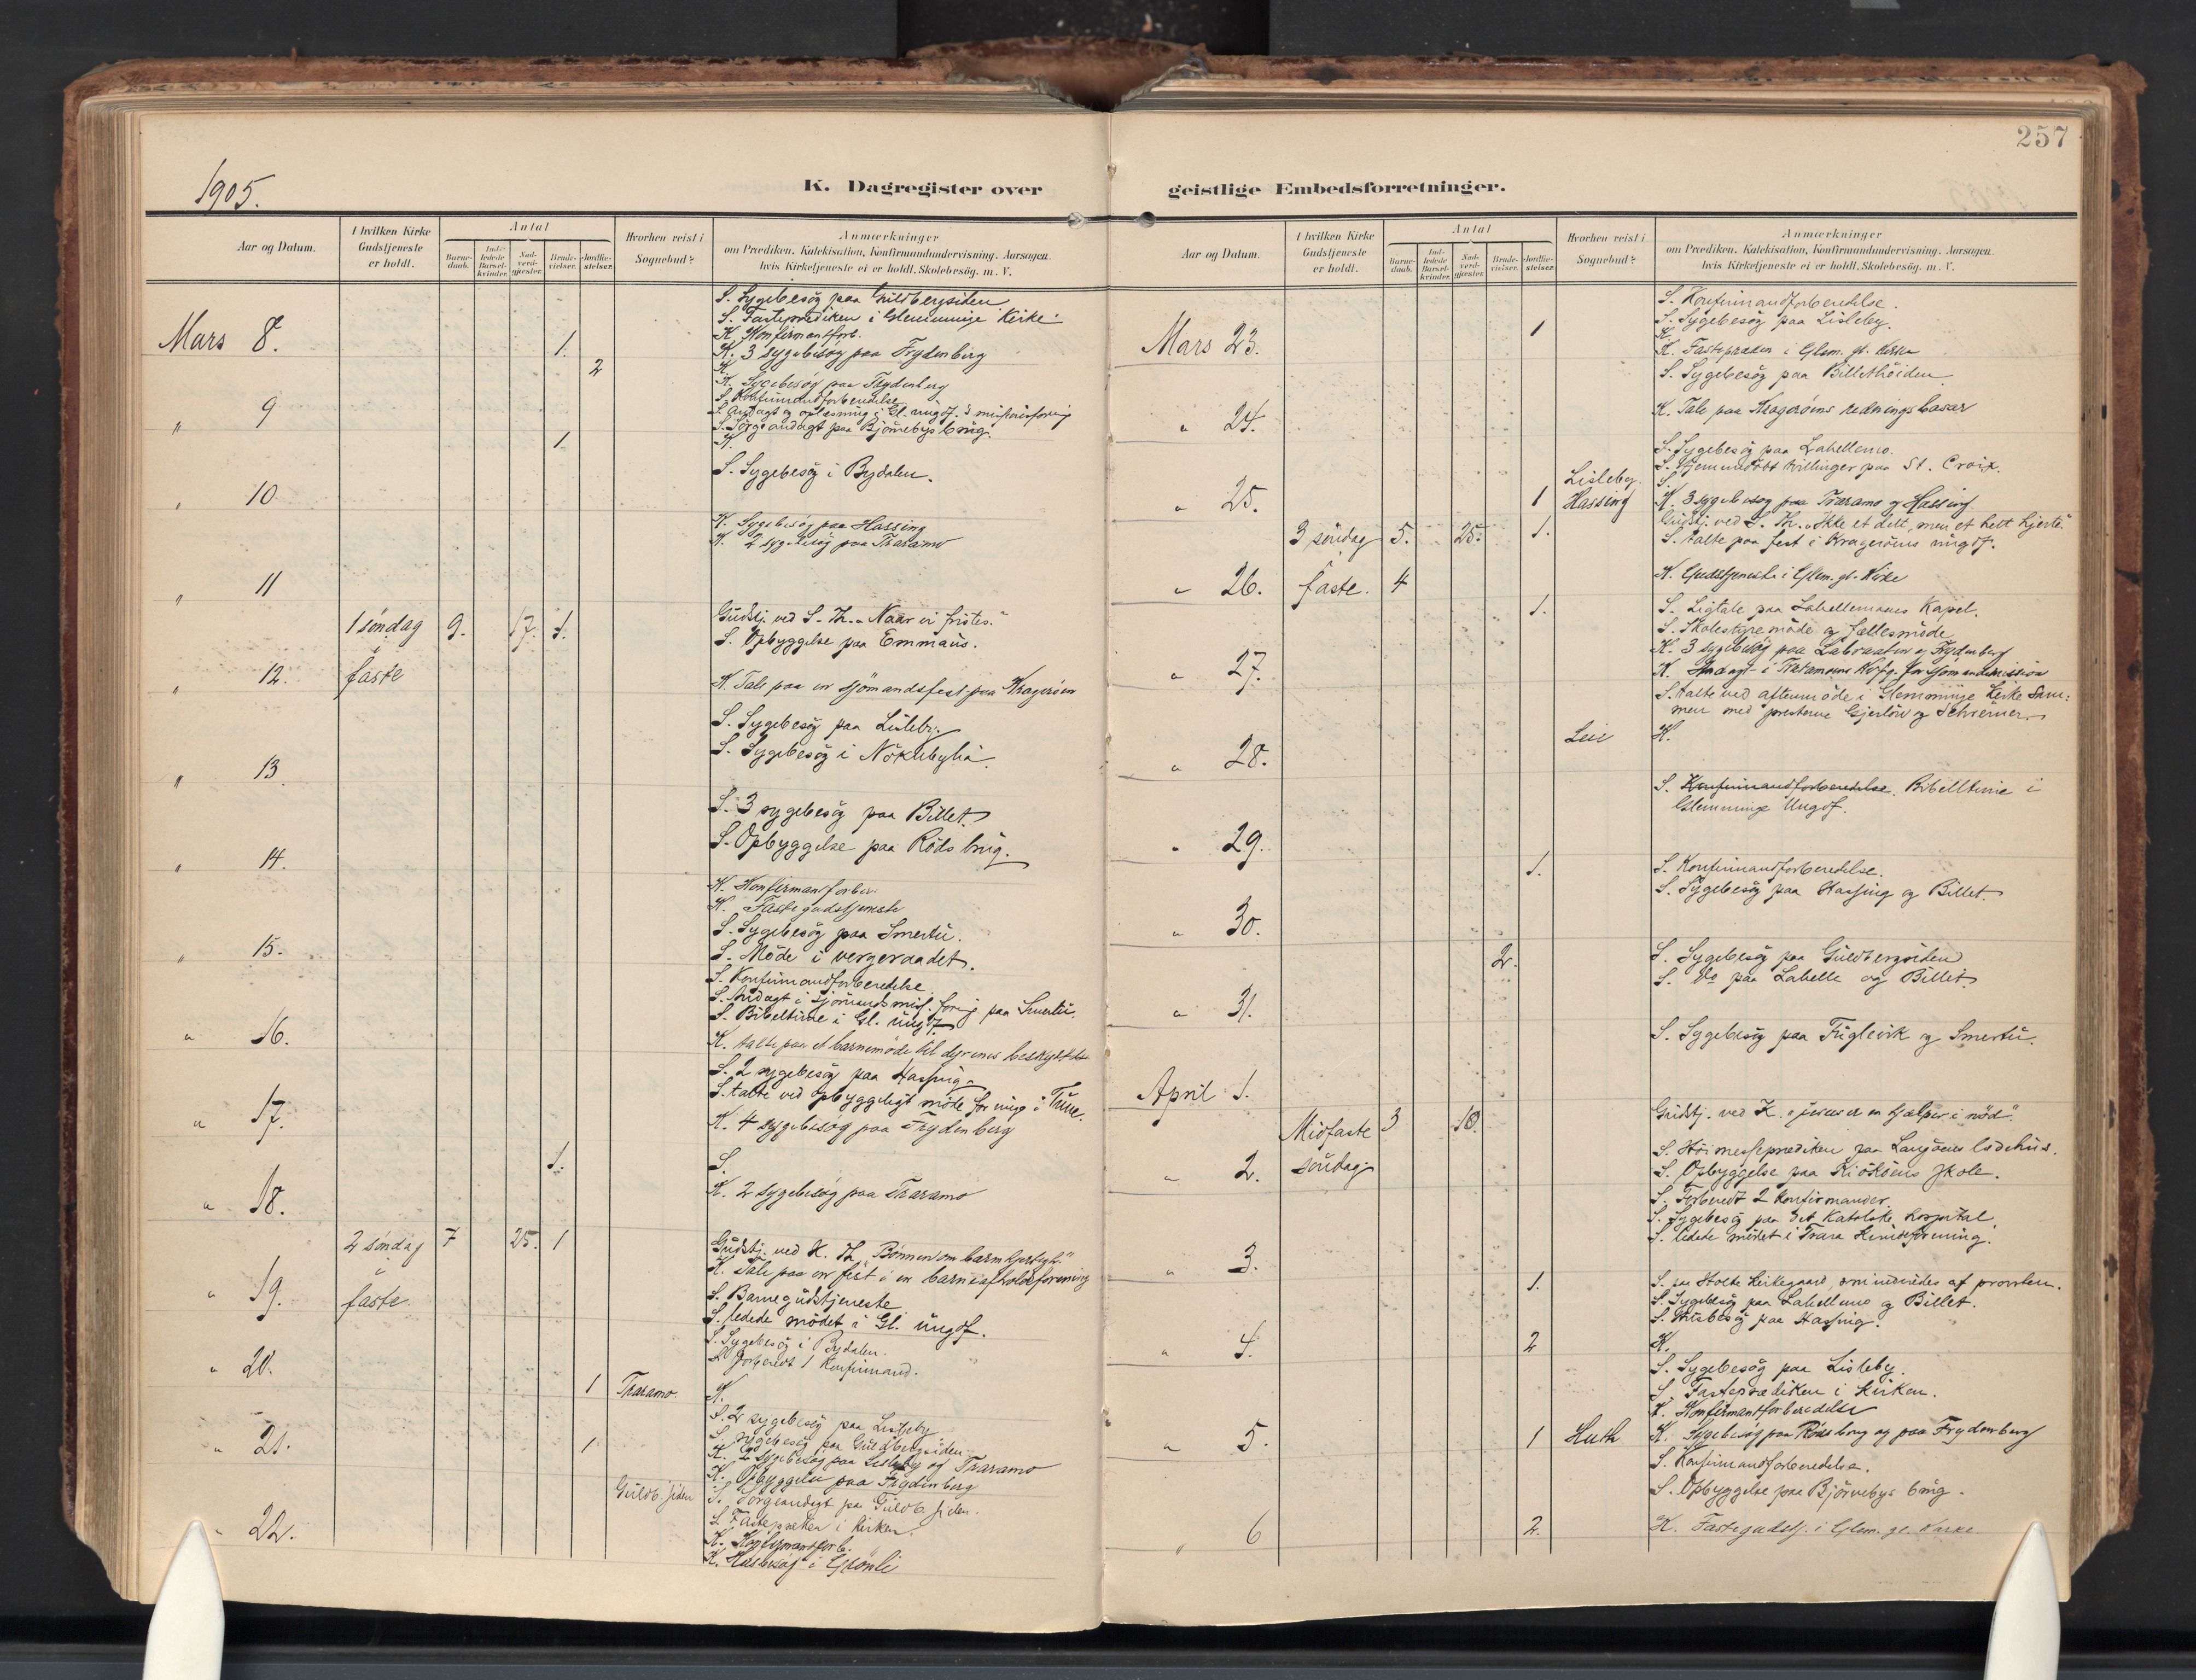 257
1905.
K. Dagregister over
geistlige Embedsforretninger.
Aar og Datum.
I hvilken Kirke Gudstjeneste er holdt.
Antal
Barne-daab.
Ind-ledede Barsel-kvinder.
Nad-verd-gjester.
Brude-vielser.
Jordfæ-stelser.
Hvorhen reist i Sognebud?
Anmærkninger
om Prædiken, Katekisation, Konfirmandundervisning, Aarsagen,
hvis Kirketjeneste ei er holdt, Skolebesög, m. V.
S. Sygebesög paa Guldbergsiden
S. Fasteprædiken i Glemminge Kirke.
Mars 8. 1. K. Konfirmantforb.
K. 3 sygebesög paa Frydenberg
2 K.
K. Sygebesög paa Frydenberg
S. Konfirmandforberedelse
„ 9 S. Andagt og oplæsning i Gl. ungdf.s misjonsforenig
S. Sörgeandagt paa Björnebys brug.
1. K.
S. Sygebesög i Bydalen.
„ 10
K. Sygebesög paa Hassing
K. 2 sygebesög paa Traramo
„ 11
1 söndag 9. 17. 1. Gudstj. ved S. Th. „Naar vi fristes.“
S. Opbyggelse paa Emmaus.
„ 12. faste
K. Tale paa en sjömandsfest paa Kragerøen
S. Sygebesög paa Lisleby.
S. Sygebesög i Nöklebyhå.
„ 13
S. 3 sygebesög paa Billet.
S. Opbyggelse paa Röds brug.
„ 14.
K. Konfirmanforber.
K. Faste gudstjeneste
S. Sygebesög paa Smertu.
„ 15. S. Möde i vergeraadet.
S. Konfirmandforberedelse
S. Andagt i sjömandsmisj. forenig paa Smertu.
S. Bibeltime i Gl. ungdf.
„ 16. K. talte paa et barnemöde til dyrenes beskyttelse
S. 2 sygebesög paa Hassing.
S. talte ved opbyggeligt möte for unge i Tune.
„ 17. K. 4 sygebesög paa Frydenberg
1. S.
K. 2 sygebesög paa Traramo
„ 18.
2 söndag 7 25. 1 Gudstj. ved K. Th. „Bönnen om barmhjertigh.“
i K. Tale paa en fest i en barneafholdsforening
„ 19. faste. S. Barnegudstjeneste
S. ledede mödet i Gl. ungdf.
S. Sygebesög i Bydalen.
„ 20. S. forberedt 1 Konfirmand.
1 Traramo. K.
S. 2 sygebesög paa Lisleby
„ 21. 1 S. sygebesög paa Guldbergsiden.
K. 2 sygebesög paa Lisleby og Traramo
K. Opbyggelse paa Frydenberg
Guldb. siden S. Sörgeandagt paa Guldb. siden.
„ 22. S. Fasteprædiken i kirken.
K. Konfirmantforb.
K. Husbesög i Grönli
Aar og Datum.
I hvilken Kirke Gudstjeneste er holdt.
Antal
Barne-daab.
Ind-ledede Barsel-kvinder.
Nad-verd-gjester.
Brude-vielser.
Jordfæ-stelser.
Hvorhen reist i Sognebud?
Anmærkninger
om Prædiken, Katekisation, Konfirmandundervisning, Aarsagen,
hvis Kirketjeneste ei er holdt, Skolebesög, m. V.
S. Konfirmandforberedelse.
S. Sygebesög paa Lisleby.
Mars 23. 1 K.
K. Fastepræken i Glem. gl. Kirke
S. Sygebesög paa Billethöiden
„ 24. K. Tale paa Kragerøens redningsbasar
S. Sygebesög paa Lahellemo.
S. Hjemmedöbt tvillinger paa St. Croix.
Lisleby. S.
„ 25. 1 Hassing K. 3 sygebesög paa Traramo og Hassing
3 söndag 5. 25. 1. Gudstj. ved S. Th. „Ikke et delt, men et helt hjerte“
S. talte paa fest i Kragerøens ungdf.
„ 26. faste. 4 K. Gudstjeneste i Glem. gl. Kirke
1. S. Ligtale paa Lahellemoens Kapel.
S. Skolestyremöde og fællesmöde
K. 3 sygebesög paa Labraaten og Frydenberg
„ 27. K. Andagt i Traramoens Kvfg. for sjömandsmission
S. talte ved aftenmöde i Glemminge Kirke sam:
men med presterne Gjerlöw og Schreiner.
Leie K.
„ 28.
S. Konfirmandforberedelse. Bibelltime i
Glemminge Ungdf.
„ 29.
1. S. Konfirmandforberedelse.
S. Sygebesög paa Hassing og Billet.
„ 30.
2. S. Sygebesög paa Guldbergsiden
S. do paa Lahelle og Billet.
„ 31.
S. Sygebesög paa Fuglevik og Smertu.
April 1.
Midfaste 3 18. Gudstj. ved K. „Jesus er en hjælper i nöd“.
S. Höimesseprædiken paa Langöens lodshus.
„ 2. söndag. S. Opbyggelse paa Kjökøens skole.
S. Forberedt 2 Konfirmander.
S. Sygebesög paa det Katolske hospital.
S. ledede mödet i Trara Kvindeforening.
„ 3.
1. S. paa Holte kirkegaard, anmodedes af provsten.
S. Sygebesög paa Lahellemo og Billet.
S. Husbesög paa Hassing.
„ 4. 2 K.
S. Sygebesög paa Lisleby.
S. Fasteprædiken i kirken.
K. Konfirmantforberedelse
„ 5. 1 Huth K. Sygebesög paa Rødsborg og paa Frydenberg
S. Konfirmandforberedelse.
S. Opbyggelse paa Björnebys brug.
„ 6 2. K. Fastegudstj. i Glem. gl. Kirke